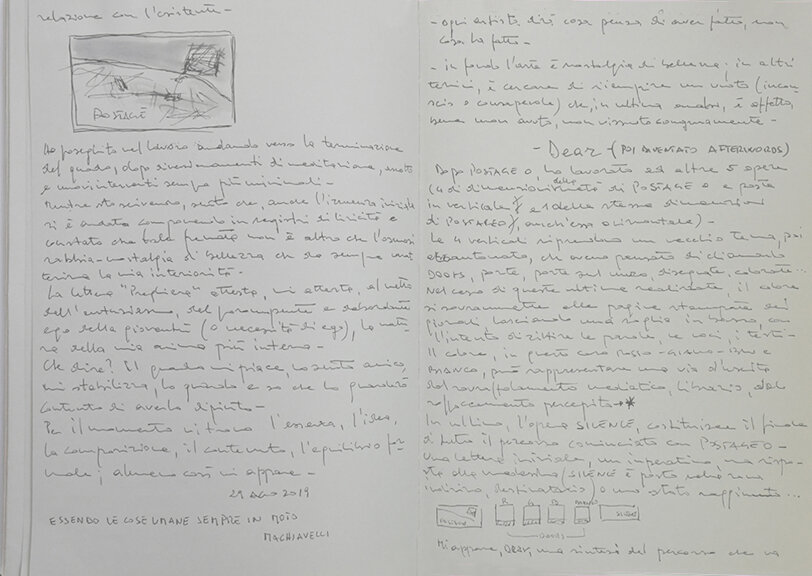 relazione con l'esistente -
POSTAGE
Ho proseguito nel lavoro andando verso la terminazione
del quadro, dopo rivestimenti di meditazione, molti
e nuovi interventi sempre più minimali -
Mentre sto scrivendo, sento che, anche l'irruenza iniziale
si è andata componendo in registri di liricità e
constato che tale non è altro che
rabbia - nostalgia di bellezza che da sempre
la mia interiorità -
La lettera "Preghiera" attesta, mi attesta, al netto
dell'entusiasmo, del prorompente e debordante
ego della gioventù (o necessità di ego), la natu
ra della mia anima più interna -
Che dire? Il quadro mi piace, lo sento amico,
mi stabilizza, lo guardo e so che lo guarderò
contento di averlo dipinto -
Per il momento vi trovo l'essenza, l'idea,
la composizione, il contenuto, l'equilibrio for
male; almeno così mi appare -
29 AGO 2019
ESSENDO LE COSE UMANE SEMPRE IN MOTO
MACHIAVELLI
- ogni artista dirà cosa pensa di aver fatto, non
cosa ha fatto -
- in fondo l'arte è nostalgia di bellezza; in altri
termini, è cercare di riempire un vuoto (incon
scio o consapevole) che, in ultima analisi, è affetto,
bene non avuto, non vissuto congruamente -
- Dear (POI DIVENTATO AFTERWORDS)
Dopo POSTAGE O ho lavorato ad altre 5 opere
(4 di dimensioni di POSTAGE O e poste
in verticale e 1 della stessa dimensione
di POSTAGE O, anch'essa orizzontale) -
Le 4 verticali riprendono un vecchio tema, poi
abbandonato, che avevo pensato di chiamarlo
DOORS, porte, porte sul muro, disegnate, colorate..
Nel caso di queste ultime realizzate, il colore
si sovrammette alle pagine stampate dei
giornali lasciando una soglia in basso, con
l'intento di zittire le parole, le voci, i testi -
Il colore, in questo caso ROSSO - GIALLO - BLU e
BIANCO, può rappresentare una via d'uscita
dal sovraffollamento mediatico, librario, dal
percepito → *
In ultimo, l'opera SILENCE, costituisce il finale
di tutto il percorso cominciato con POSTAGE O -
una lettera iniziale, un imperativo, una rispo
sta alla medesima (SILENCE è posto nella zona
indirizzo, destinatario) o uno stato raggiunto ...
R
BIANCO
SILENCE
DOORS
Mi appare, DEAR, una sintesi del percorso che va